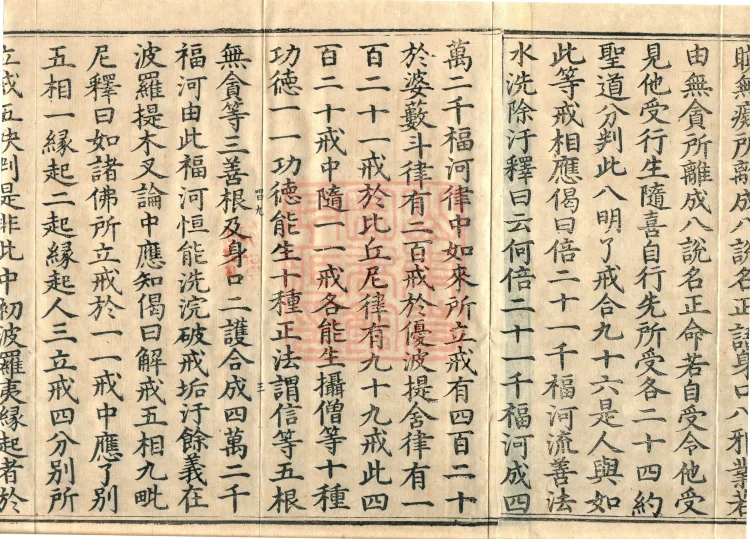 瞋無癡所離成八說名正語身口八邪業若
由無貪所離成八說名正命若自受令他受
見他受行生隨喜自行先所受各二十四約
聖道分判此八明了戒合九十六是人與如
此等戒相應偈曰倍二十一千福河流善法
水洗除汙釋曰云何倍二十一千福河成四
萬二千福河律中如來所立戒有四百二十
於婆藪斗律有二百戒於優波提舍律有一
百二十一戒於比丘尼律有九十九戒此四
百二十戒中隨一一戒各能生攝僧等十種
功德一一功德能生十種正法謂信等五根
無貪等三善根及身口二護合成四萬二千
福河由此福河恒能洗浣破戒垢汙餘義在
波羅提木叉論中應知偈曰解戒五相九毗
尼釋曰如諸佛所立戒於一一戒中應了別
五相一緣起二起緣起人三立戒四分別所
立戒五決判是非此中初波羅夷緣起者於
四九
三